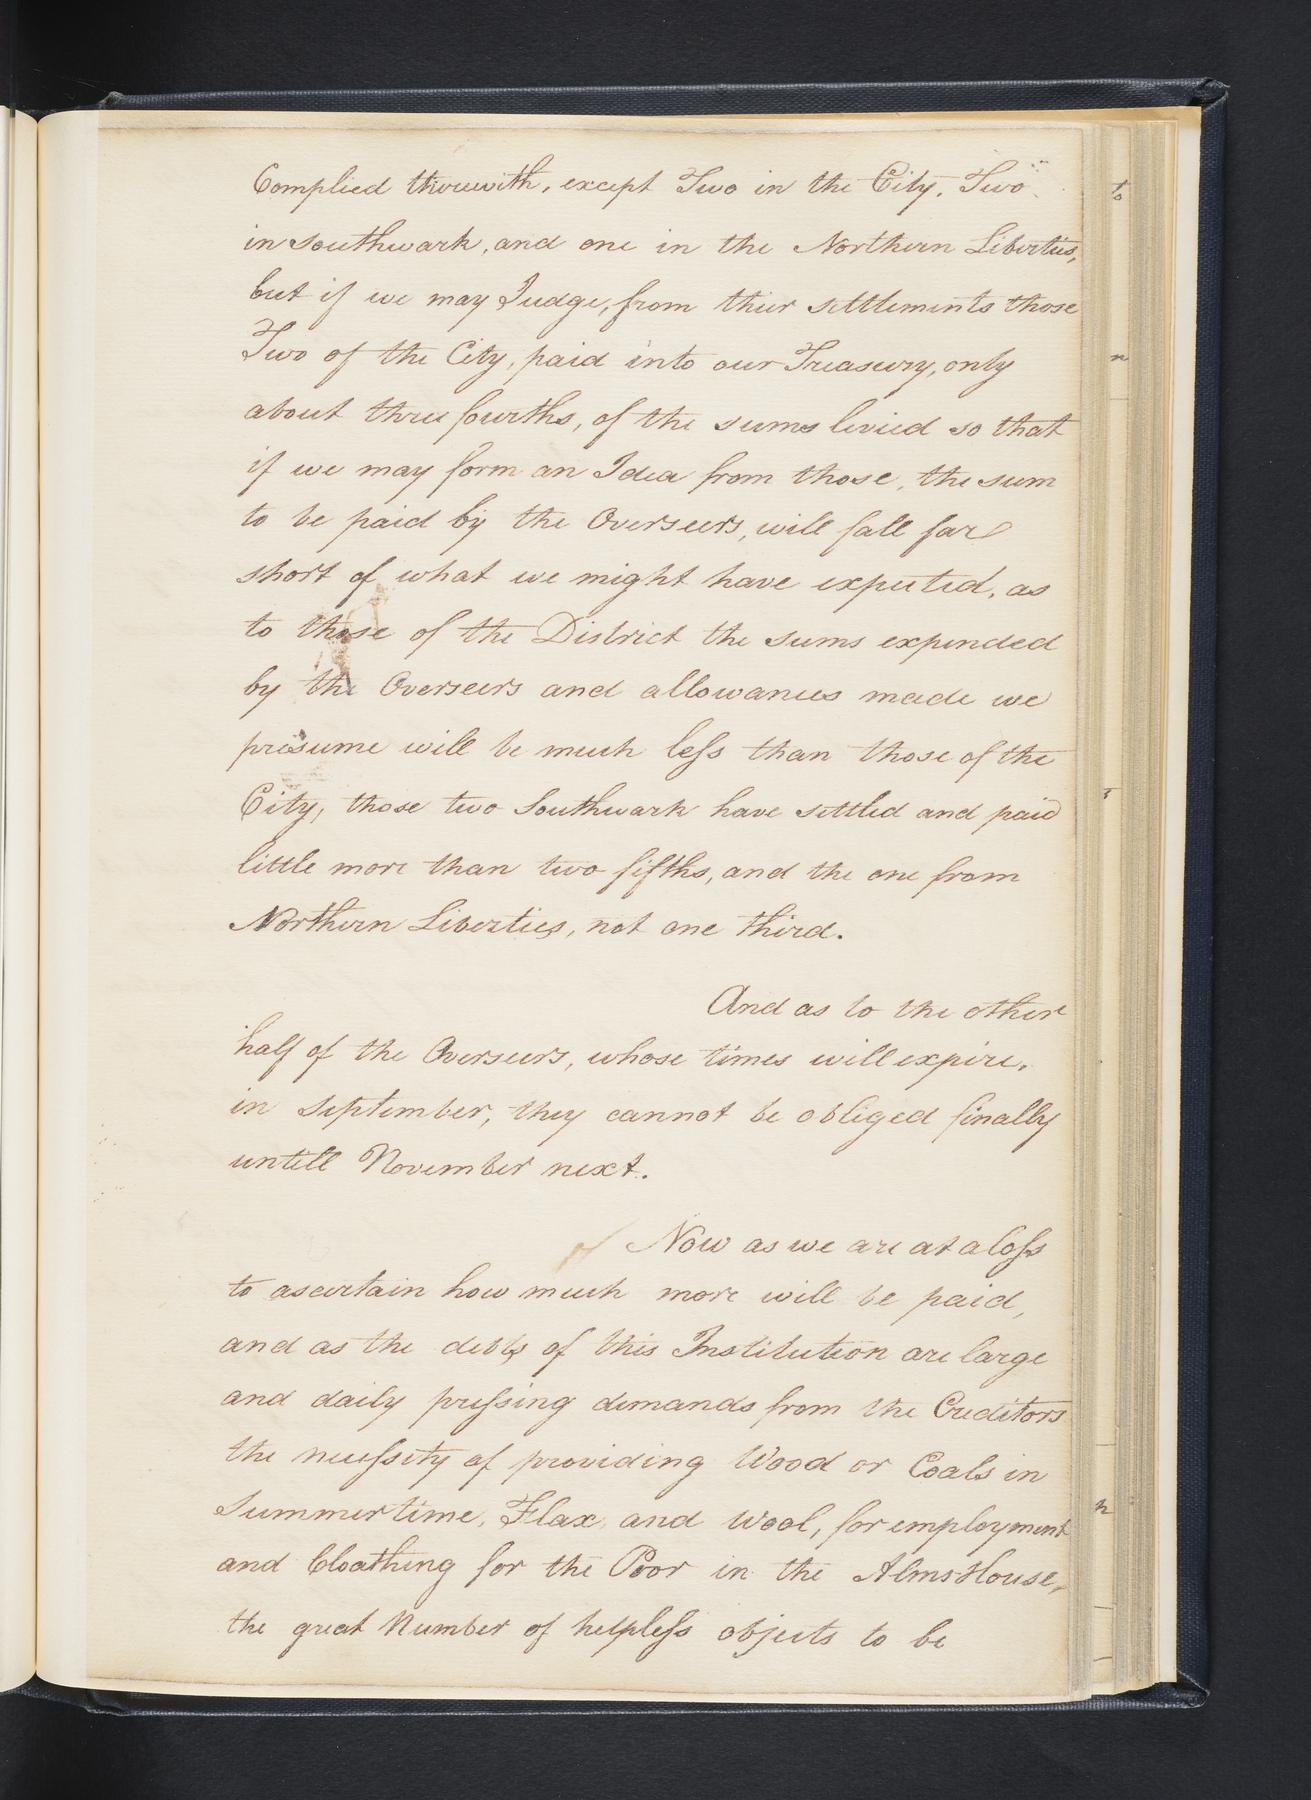 Complied therewith, except Two in the City, Two
in Southwark, and one in the Northern Liberties,
but if we may Judge, from thier settlements those
Two of the City, paid into our Treasury, only
about three fourths, of the sums levied so that
if we may form an Idea from those, the sum
to be paid by the Overseers, will fall far
short of what we might have expected, as
to those of the District the sums expended
by the Overseers and allowances made we
presume will be much less than those of the
City, those two Southwark have settled and paid
little more than two fifths, and the one from
Northern Liberties, not one third.
And as to the other
half of the Overseers, whose times will expire,
in September, they cannot be obliged finally
untill November next.
Now as we are at a loss
to ascertain how much more will be paid,
and as the debts of this Institution are large
and daily pressing demands from the Creditors
the necessity of providing Wood or Coals in
Summer time, Flax and Wool, for employment
and Cloathing for the Poor in the Alms House,
the great Number of helpless objects to be
to
n
n